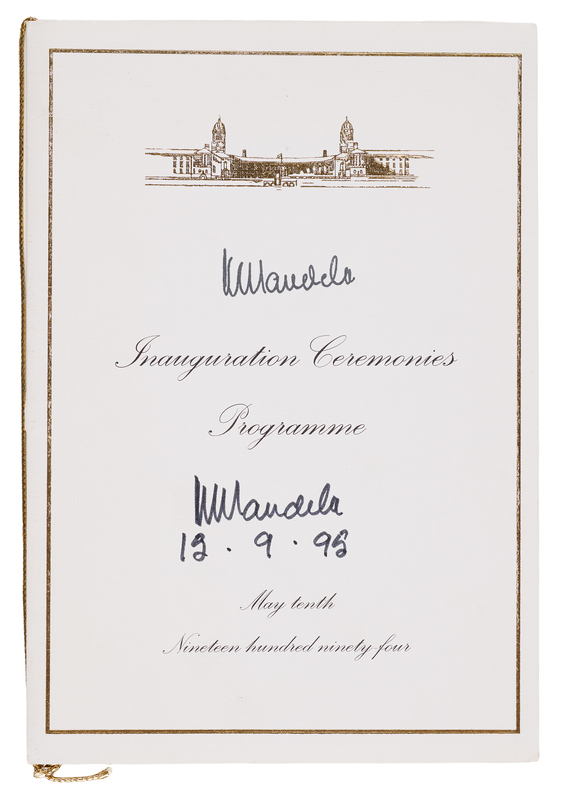 NMandela
Inauguration Ceremonies
Programme
NMandela
13 . 9 . 95
May tenth
Nineteen hundred ninety-four